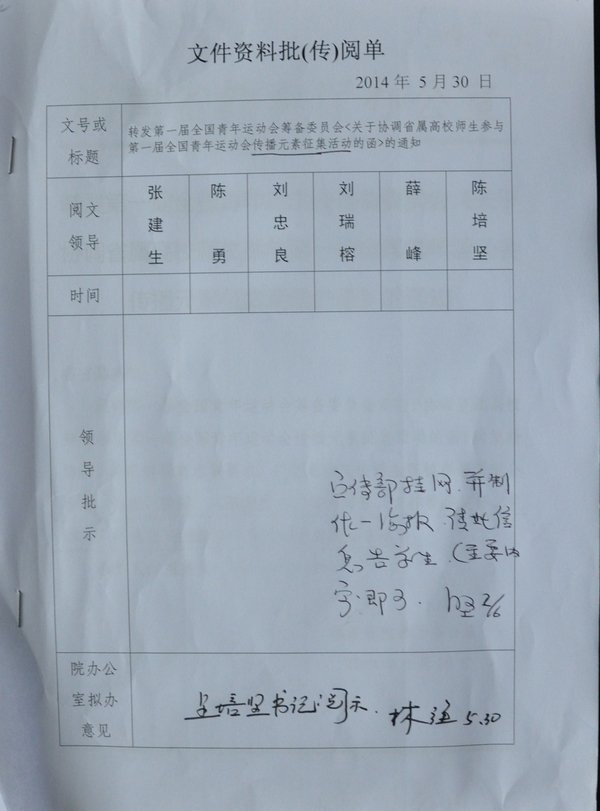 文件资料批(传)阅单
2014 年 5 月 30 日
文号或
标题
转发第一届全国青年运动会筹备委员会<关于协调省属高校师生参与
第一届全国青年运动会传播元素征集活动的函>的通知
阅文
领导
张建生
陈勇
刘忠良
刘瑞榕
薛峰
陈培坚
时间
领导批示
宣传部挂网.并制
一海报.
息告学生.(主要内
即可. 2/6
院办公
室拟办
意见
呈培坚书记阅示. 林 5.30